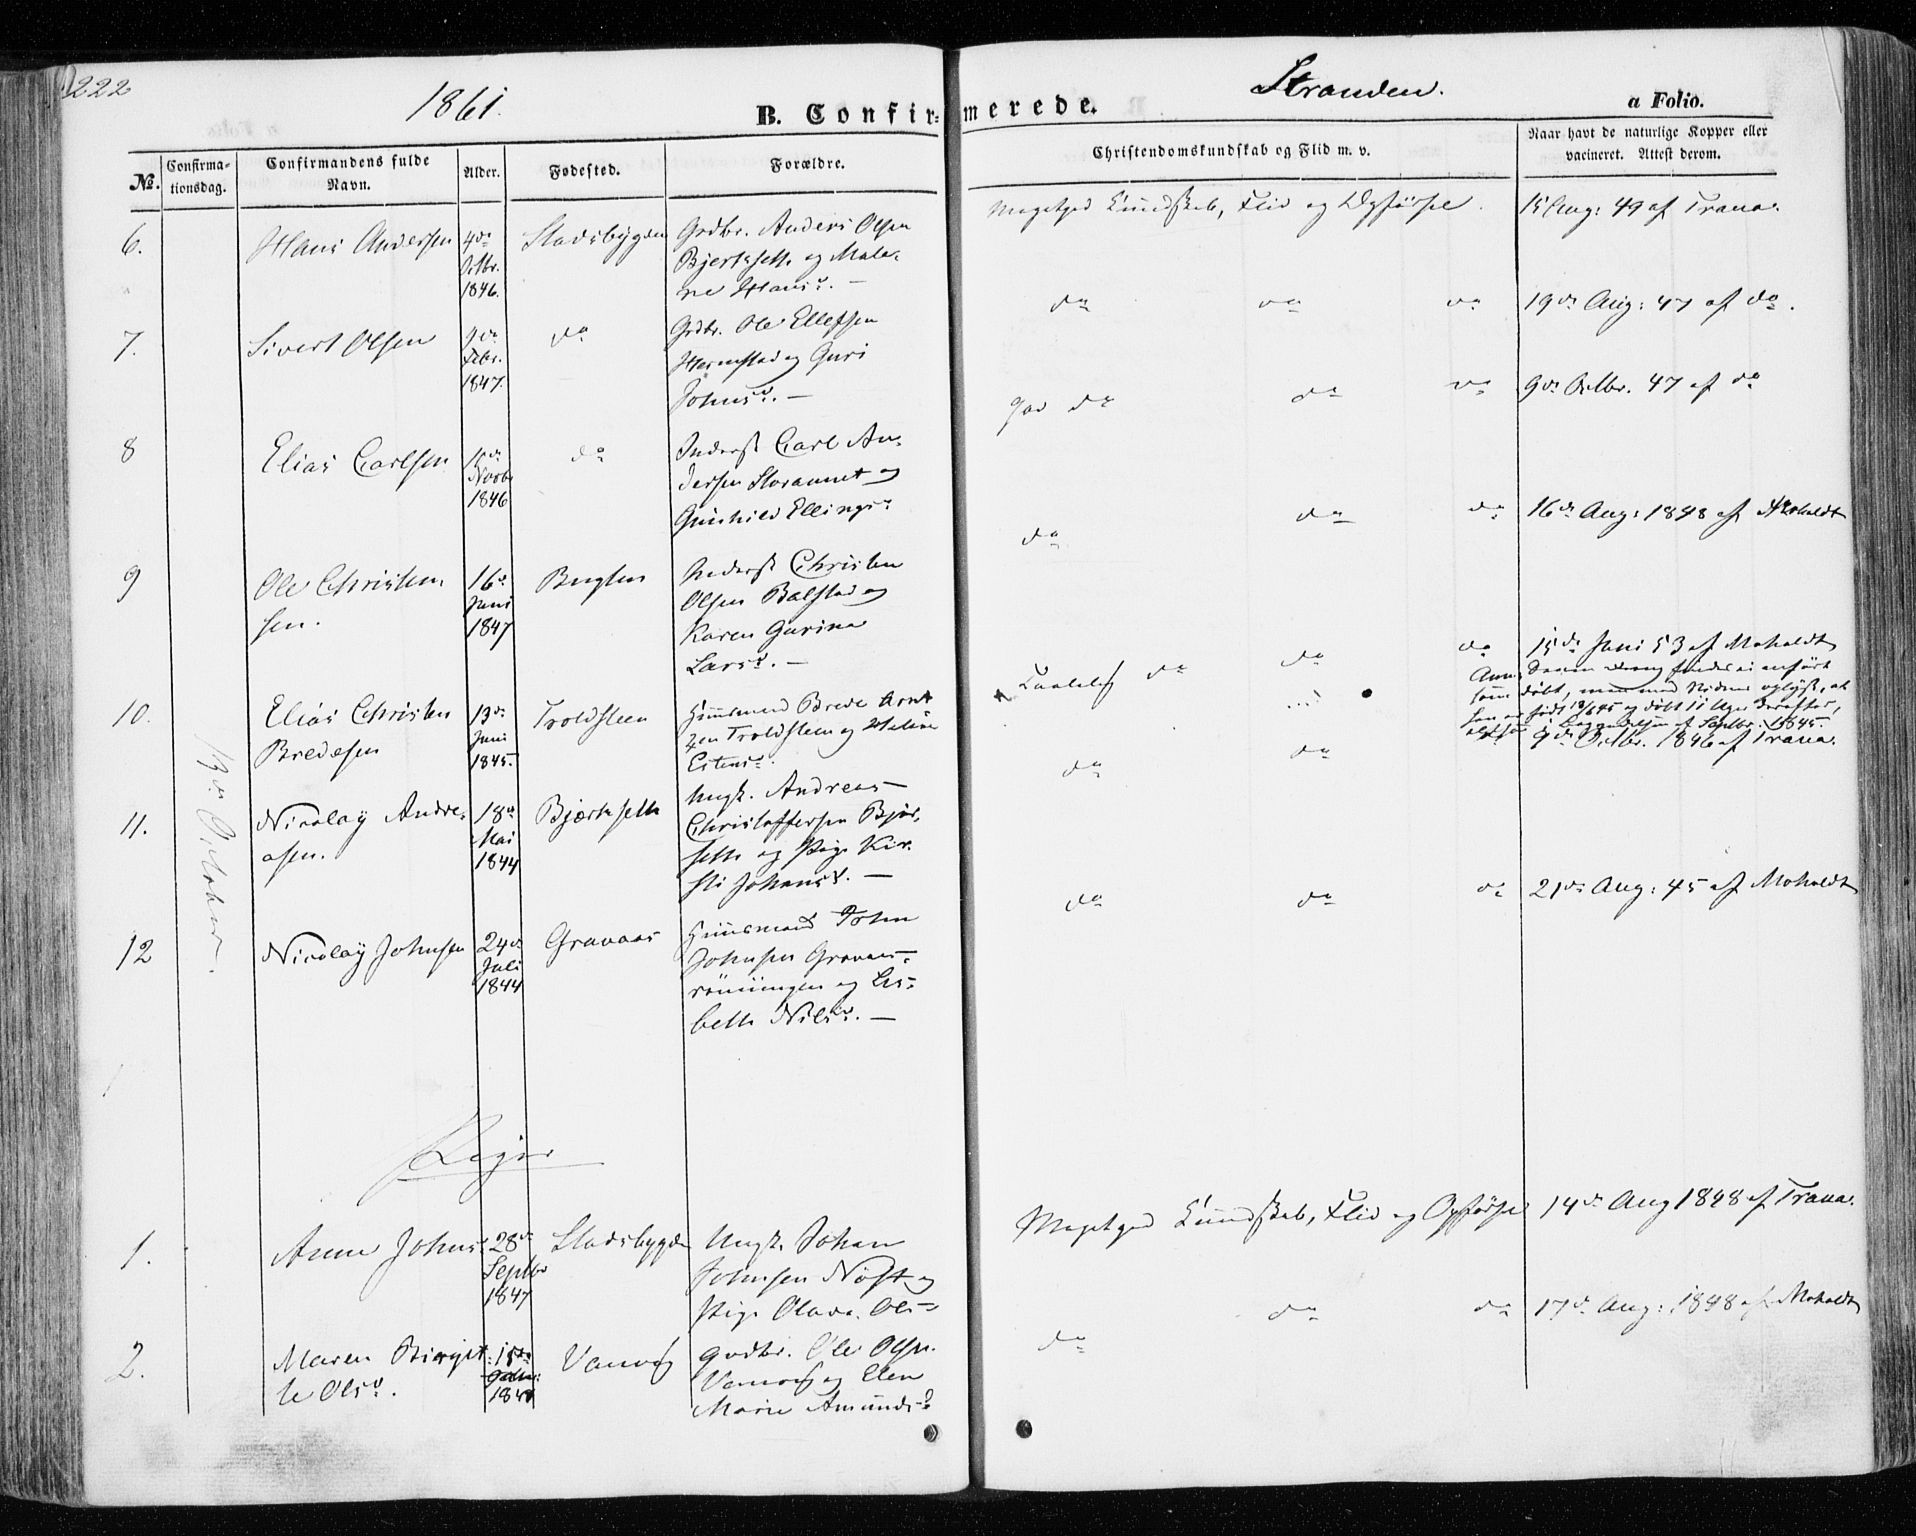 222
1861.
B. Confirmerede.
Stranden.
a Folio.
No.
Confirma-
tionsdag.
Confirmandens fulde
Navn.
Alder.
Fødested.
Forældre.
Christendomskundskab og Flid m. v.
Naar havt de naturlige Kopper eller
vacineret. Attest derom.
6.
Hans Andersen
4de
Octbr.
1846.
Stadsbygden
Grdbr. Anders Olsen
Bjerkseth og Male-
ne Hansd. —
Megetgod Kundskab, Flid og Opførsel.
15 Aug: 49 af Trana.
7.
Sivert Olsen
9de
Febr.
1847.
do
Grdbr. Ole Ellefsen
Harmstad og Guri
Johnsd. —
do do do
19de Aug: 47 af do.
8
Elias Carlsen
15de
Novbr
1846
do
Inderst Carl An-
dersen Storaunet og
Gunhild Ellingsd.
God do do do
9de Octbr. 47 af do
9
Ole Christen-
sen.
16de
Juni
1847
Bugten
Inderst Christen
Olsen Balstad og
Karen Gurina
Larsd. —
do do do
16de Aug: 1848 af Moholdt
10.
Elias Christen
Bredesen
13de
Juni
1845.
Troldsteen
Huusmand Brede Arnt
zen Troldsteen og
Estensd.
Taalelig do do do
15de Juni 53 af Moholdt
Anm. Denne Dreng findes ei anført
som døbt, men med Vidner oplyst, at
han er født 13/6 45 og døbt 11 Uger derefter,
altsaa i Begyndelsen af Septbr. 1845.
13de October.
11.
Nicolay Andre-
asen.
18de
Mai
1844
Bjærkseth
Ungk. Andreas
Christoffersen Bjør-
seth og Pige Kir-
sti Johansd. —
do do
9de Octbr. 1846 af Trana.
12
Nicolay Johnsen
24de
Juli
1844
Gravaas
Huusmand John
Johnsen Gravaas-
rønningen og Lis-
beth Nilsd. —
do do do
21de Aug: 45 af Moholdt
Piger
1.
Anne Johnsd.
28de
Septbr
1847
Stadsbygden
Ungk. Johan
Johnsen Nøst og
Pige Olava Olsd.
Megetgod Kundskab, Flid og Opførsel
14de Aug 1848 af Trana.
2.
Maren Birgit-
te Olsd.
Vemoes
Grdbr. Ole Olsen
Vemoes og Elen
Marie Amundsd.
do do do
17de Aug: 1848 af Moholdt